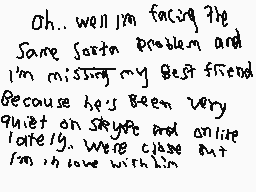 Oh.. well I'm facing the
same sorta problem and
I'm missing my best friend
Because he's been very
quiet on skype and online
lately. We're close but
I'm in love with him